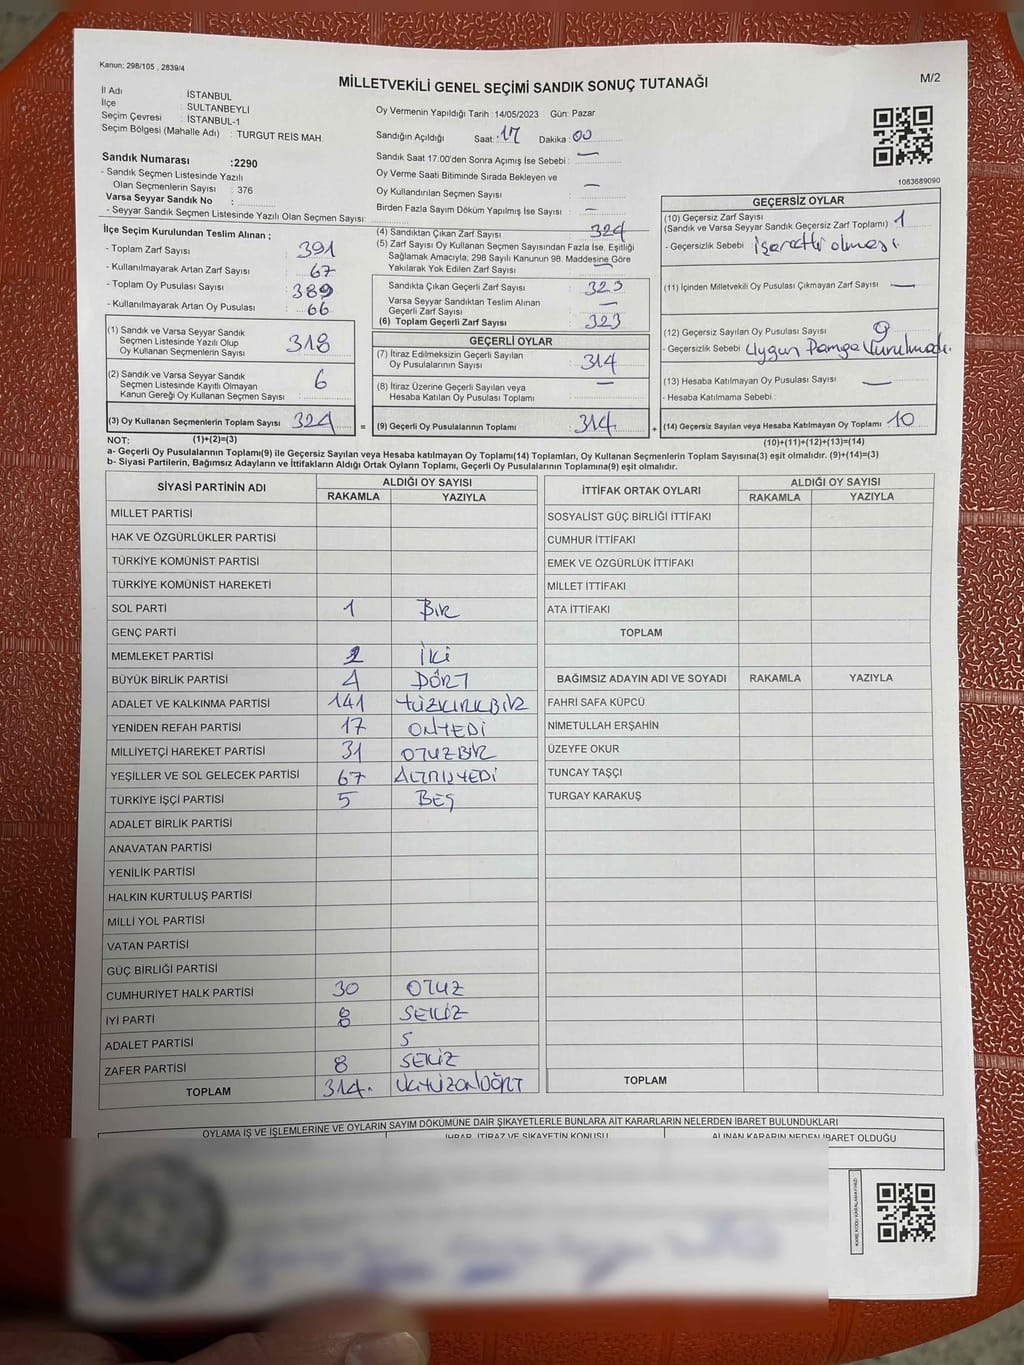 Kanun: 298/105 , 2839/4
MİLLETVEKİLİ GENEL SEÇİMİ SANDIK SONUÇ TUTANAĞI
M/2
İl Adı : İSTANBUL
İlçe : SULTANBEYLİ
Seçim Çevresi : İSTANBUL-1
Seçim Bölgesi (Mahalle Adı) : TURGUT REİS MAH.
Oy Vermenin Yapıldığı Tarih : 14/05/2023 Gün: Pazar
Sandığın Açıldığı Saat: 17 Dakika: 00
Sandık Saat 17.00'den Sonra Açımış İse Sebebi : —
Oy Verme Saati Bitiminde Sırada Bekleyen ve
Oy Kullandırılan Seçmen Sayısı : —
Birden Fazla Sayım Döküm Yapılmış İse Sayısı : —
1083689090
Sandık Numarası :2290
- Sandık Seçmen Listesinde Yazılı
Olan Seçmenlerin Sayısı : 376
Varsa Seyyar Sandık No :
- Seyyar Sandık Seçmen Listesinde Yazılı Olan Seçmen Sayısı:
İlçe Seçim Kurulundan Teslim Alınan ;
- Toplam Zarf Sayısı : 391
- Kullanılmayarak Artan Zarf Sayısı : 67
- Toplam Oy Pusulası Sayısı : 389
- Kullanılmayarak Artan Oy Pusulası : 66
(1) Sandık ve Varsa Seyyar Sandık
Seçmen Listesinde Yazılı Olup
Oy Kullanan Seçmenlerin Sayısı : 318
(2) Sandık ve Varsa Seyyar Sandık
Seçmen Listesinde Kayıtlı Olmayan
Kanun Gereği Oy Kullanan Seçmen Sayısı : 6
(3) Oy Kullanan Seçmenlerin Toplam Sayısı : 324
(4) Sandıktan Çıkan Zarf Sayısı : 324
(5) Zarf Sayısı Oy Kullanan Seçmen Sayısından Fazla İse, Eşitliği
Sağlamak Amacıyla; 298 Sayılı Kanunun 98. Maddesine Göre
Yakılarak Yok Edilen Zarf Sayısı : —
Sandıkta Çıkan Geçerli Zarf Sayısı : 323
Varsa Seyyar Sandıktan Teslim Alınan
Geçerli Zarf Sayısı : —
(6) Toplam Geçerli Zarf Sayısı : 323
GEÇERLİ OYLAR
(7) İtiraz Edilmeksizin Geçerli Sayılan
Oy Pusulalarının Sayısı : 314
(8) İtiraz Üzerine Geçerli Sayılan veya
Hesaba Katılan Oy Pusulası Toplamı : —
= (9) Geçerli Oy Pusulalarının Toplamı : 314
GEÇERSİZ OYLAR
(10) Geçersiz Zarf Sayısı
(Sandık ve Varsa Seyyar Sandık Geçersiz Zarf Toplamı) : 1
- Geçersizlik Sebebi : işaretli olması
(11) İçinden Milletvekili Oy Pusulası Çıkmayan Zarf Sayısı : —
(12) Geçersiz Sayılan Oy Pusulası Sayısı : 9
- Geçersizlik Sebebi : Uygun Damga Vurulmadı.
(13) Hesaba Katılmayan Oy Pusulası Sayısı : —
- Hesaba Katılmama Sebebi :
+ (14) Geçersiz Sayılan veya Hesaba Katılmayan Oy Toplamı : 10
NOT: (1)+(2)=(3)
(10)+(11)+(12)+(13)=(14)
a- Geçerli Oy Pusulalarının Toplamı(9) ile Geçersiz Sayılan veya Hesaba katılmayan Oy Toplamı(14) Toplamları, Oy Kullanan Seçmenlerin Toplam Sayısına(3) eşit olmalıdır. (9)+(14)=(3)
b- Siyasi Partilerin, Bağımsız Adayların ve İttifakların Aldığı Ortak Oyların Toplamı, Geçerli Oy Pusulalarının Toplamına(9) eşit olmalıdır.
SİYASİ PARTİNİN ADI ALDIĞI OY SAYISI
RAKAMLA YAZIYLA
MİLLET PARTİSİ
HAK VE ÖZGÜRLÜKLER PARTİSİ
TÜRKİYE KOMÜNİST PARTİSİ
TÜRKİYE KOMÜNİST HAREKETİ
SOL PARTİ 1 BİR
GENÇ PARTİ
MEMLEKET PARTİSİ 2 İKİ
BÜYÜK BİRLİK PARTİSİ 4 DÖRT
ADALET VE KALKINMA PARTİSİ 141 YÜZKIRKBİR
YENİDEN REFAH PARTİSİ 17 ONYEDİ
MİLLİYETÇİ HAREKET PARTİSİ 31 OTUZBİR
YEŞİLLER VE SOL GELECEK PARTİSİ 67 ALTMIŞYEDİ
TÜRKİYE İŞÇİ PARTİSİ 5 BEŞ
ADALET BİRLİK PARTİSİ
ANAVATAN PARTİSİ
YENİLİK PARTİSİ
HALKIN KURTULUŞ PARTİSİ
MİLLİ YOL PARTİSİ
VATAN PARTİSİ
GÜÇ BİRLİĞİ PARTİSİ
CUMHURİYET HALK PARTİSİ 30 OTUZ
İYİ PARTİ 8 SEKİZ
ADALET PARTİSİ S
ZAFER PARTİSİ 8 SEKİZ
TOPLAM 314. ÜÇYÜZONDÖRT
İTTİFAK ORTAK OYLARI ALDIĞI OY SAYISI
RAKAMLA YAZIYLA
SOSYALİST GÜÇ BİRLİĞİ İTTİFAKI
CUMHUR İTTİFAKI
EMEK VE ÖZGÜRLÜK İTTİFAKI
MİLLET İTTİFAKI
ATA İTTİFAKI
TOPLAM
BAĞIMSIZ ADAYIN ADI VE SOYADI RAKAMLA YAZIYLA
FAHRİ SAFA KÜPCÜ
NİMETULLAH ERŞAHİN
ÜZEYFE OKUR
TUNCAY TAŞÇI
TURGAY KARAKUŞ
TOPLAM
OYLAMA İŞ VE İŞLEMLERİNE VE OYLARIN SAYIM DÖKÜMÜNE DAİR ŞİKAYETLERLE BUNLARA AİT KARARLARIN NELERDEN İBARET BULUNDUKLARI
İHBAR, İTİRAZ VE ŞİKAYETİN KONUSU ALINAN KARARIN NEDEN İBARET OLDUĞU